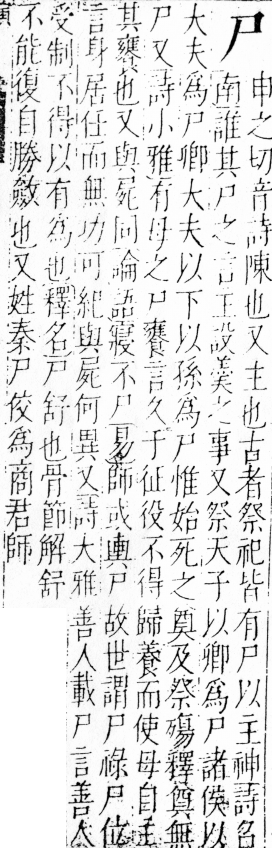 尸
申之切音詩陳也又主也古者祭祀皆有尸以主神詩召
南誰其尸之言主設羹之事又祭天子以卿為尸諸侯以
大夫為尸卿大夫以下以孫為尸惟始死之奠及祭殤釋奠無
尸又詩小雅有母之尸饔言久于征役不得歸養而使母自主
其饔也又與屍同論語寢不尸易師或輿尸故世謂尸祿尸位
言身居任而無功可紀與屍何異又詩大雅善人載尸言善人
受制不得以有為也釋名尸舒也骨節解舒
不能復自勝斂也又姓秦尸佼為商君師